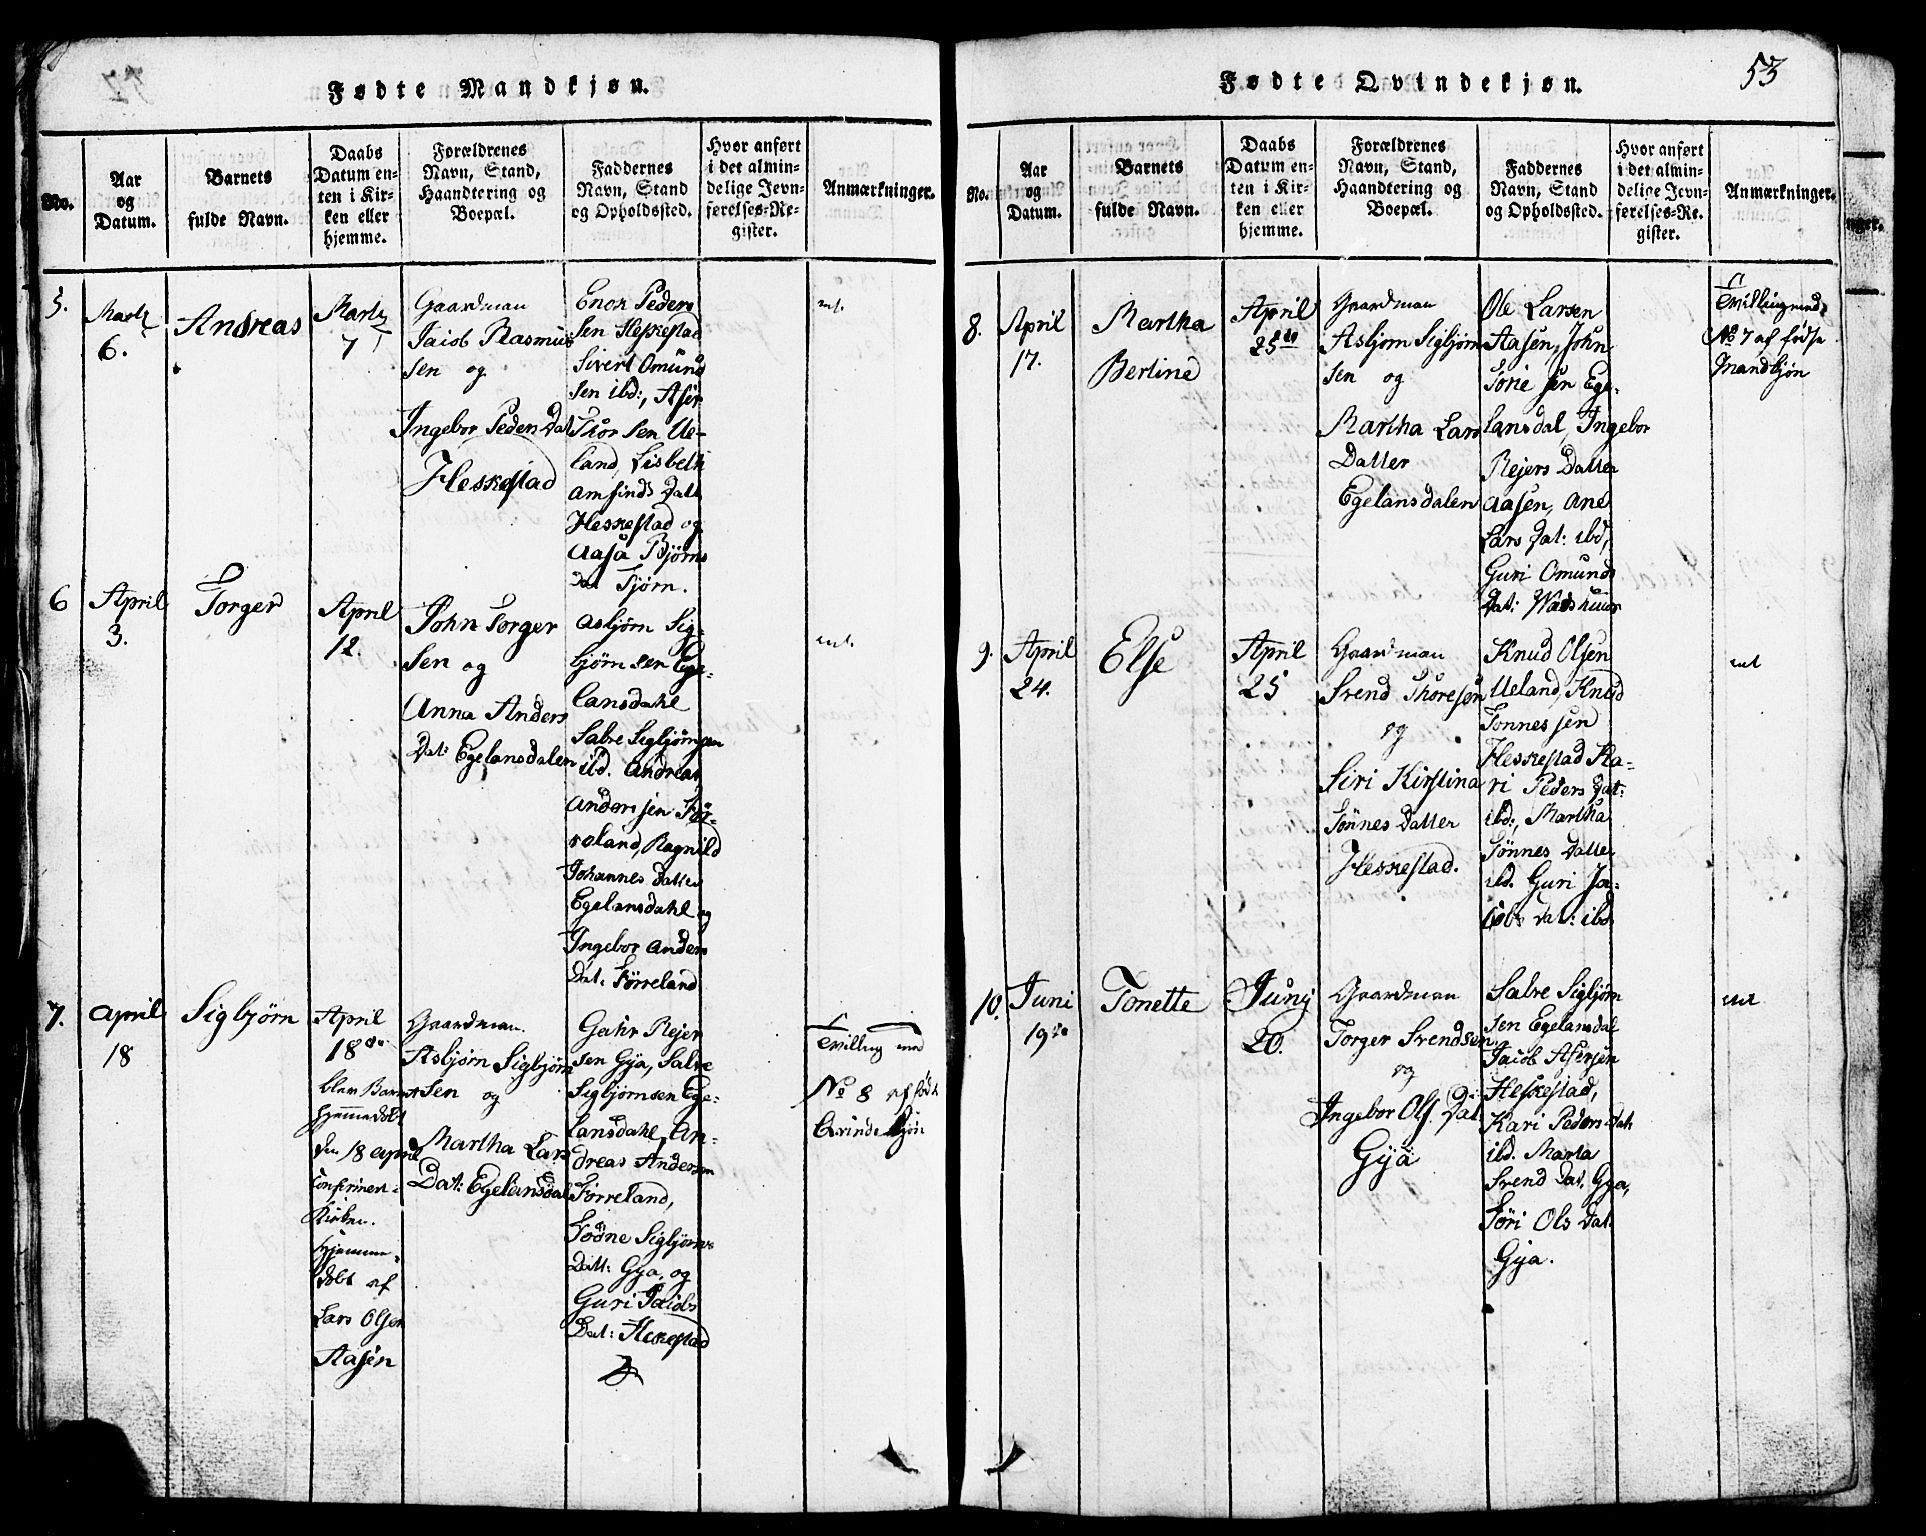 Fødte Mandkjøn.
No.
Aar
og
Datum.
Barnets
fulde Navn.
Daabs
Datum en-
ten i Kir-
ken eller
hjemme.
Forældrenes
Navn, Stand,
Haandtering og
Boepæl.
Faddernes
Navn, Stand
og Opholdssted.
Hvor anført
i det almin-
delige Jevn-
førelses-Re-
gister.
Anmærkninger.
5.
Marty
6.
Andreas
Marty
7
Gaardman
Jacob Rasmus
sen og
Ingebor Peders Dat
Heskestad
Enok Peder
sen Heskestad
Sivert Omund
sen ibd:, Aser
Thor sen Ue-
land, Lisbeth
Amfinds Datt
Heskestad og
Aasa Bjørns
Dat Tjørn.
int.
6
April
3.
Torger
April
12.
John Torger
sen og
Anna Anders
Dat: Egelansdalen
Asbjørn Sig-
bjørn sen Ege-
lansdahl
Salve Sigbjørnsen
ibd. Andreas
Anders sen Før-
roland, Ragnild
Johannes Datter
Egelansdahl og
Ingebor Anders
Dat. Førreland
int.
7.
April
18
Sigbjørn
April
18de
blev Barnet
hjemmedøbt
den 18 April
Confirmert i
Kirken.
Hjemme-
døbt af
Lars Olsen
Aasen
Gaardman.
Asbjørn Sigbjørn
sen og
Martha Lars
Dat: Egelansdal
Gahr Rejer
sen Gya, Salve
Sigbjørnsen Ege-
lansdahl, An-
dreas Andersen
Førreland,
Tødne Sigbjørns
Datt: Gya, og
Guri Jacobs
Dat: Heskestad
Tvilling med
No 8 af født
Qvindekjøn
Fødte Qvindekjøn.
53
No.
Aar
og
Datum.
Barnets
fulde Navn.
Daabs
Datum en-
ten i Kir-
ken eller
hjemme.
Forældrenes
Navn, Stand,
Haandtering og
Boepæl.
Faddernes
Navn, Stand
og Opholdssted.
Hvor anført
i det almin-
delige Jevn-
førelses-Re-
gister.
Anmærkninger.
8.
April
17.
Martha
Berline
April
25de
Gaardman
Asbjørn Sigbjørn
sen og
Martha Lars
Datter
Egelansdalen
Ole Larsen
Aasen, John
Torie sen Ege-
lansdal, Ingebor
Rejers Datter
Aasen, Ane
Lars Dat: ibd,
Guri Omunds
Dat: Wadshuus
Tvilling med
No 7 af fødte
Mandkjøn
9.
April
24.
Else
April
25
Gaardman
Svend Thoresen
og
Siri Kirstina
Tønnes Datter
Heskestad.
Knud Olsen
Ueland, Knud
Tønnes sen
Heskestad Ka-
ri Peders Dat:
ibd:, Martha
Tønnes Datter
ibd. Guri Ja-
cobs Dat: ibd
int
10.
Juni
19de
Tonette
Junij
20.
Gaardman
Torger Svendsen
og
Ingebor Ols Dat
Gya
Salve Sigbjørn
sen Egelansdal
Jacob Asersen
Heskestad,
Kari Peders Dat
ibd. Marta
Svend Dat. Gya,
Tøri Ols Dat
Gya.
int
nger.